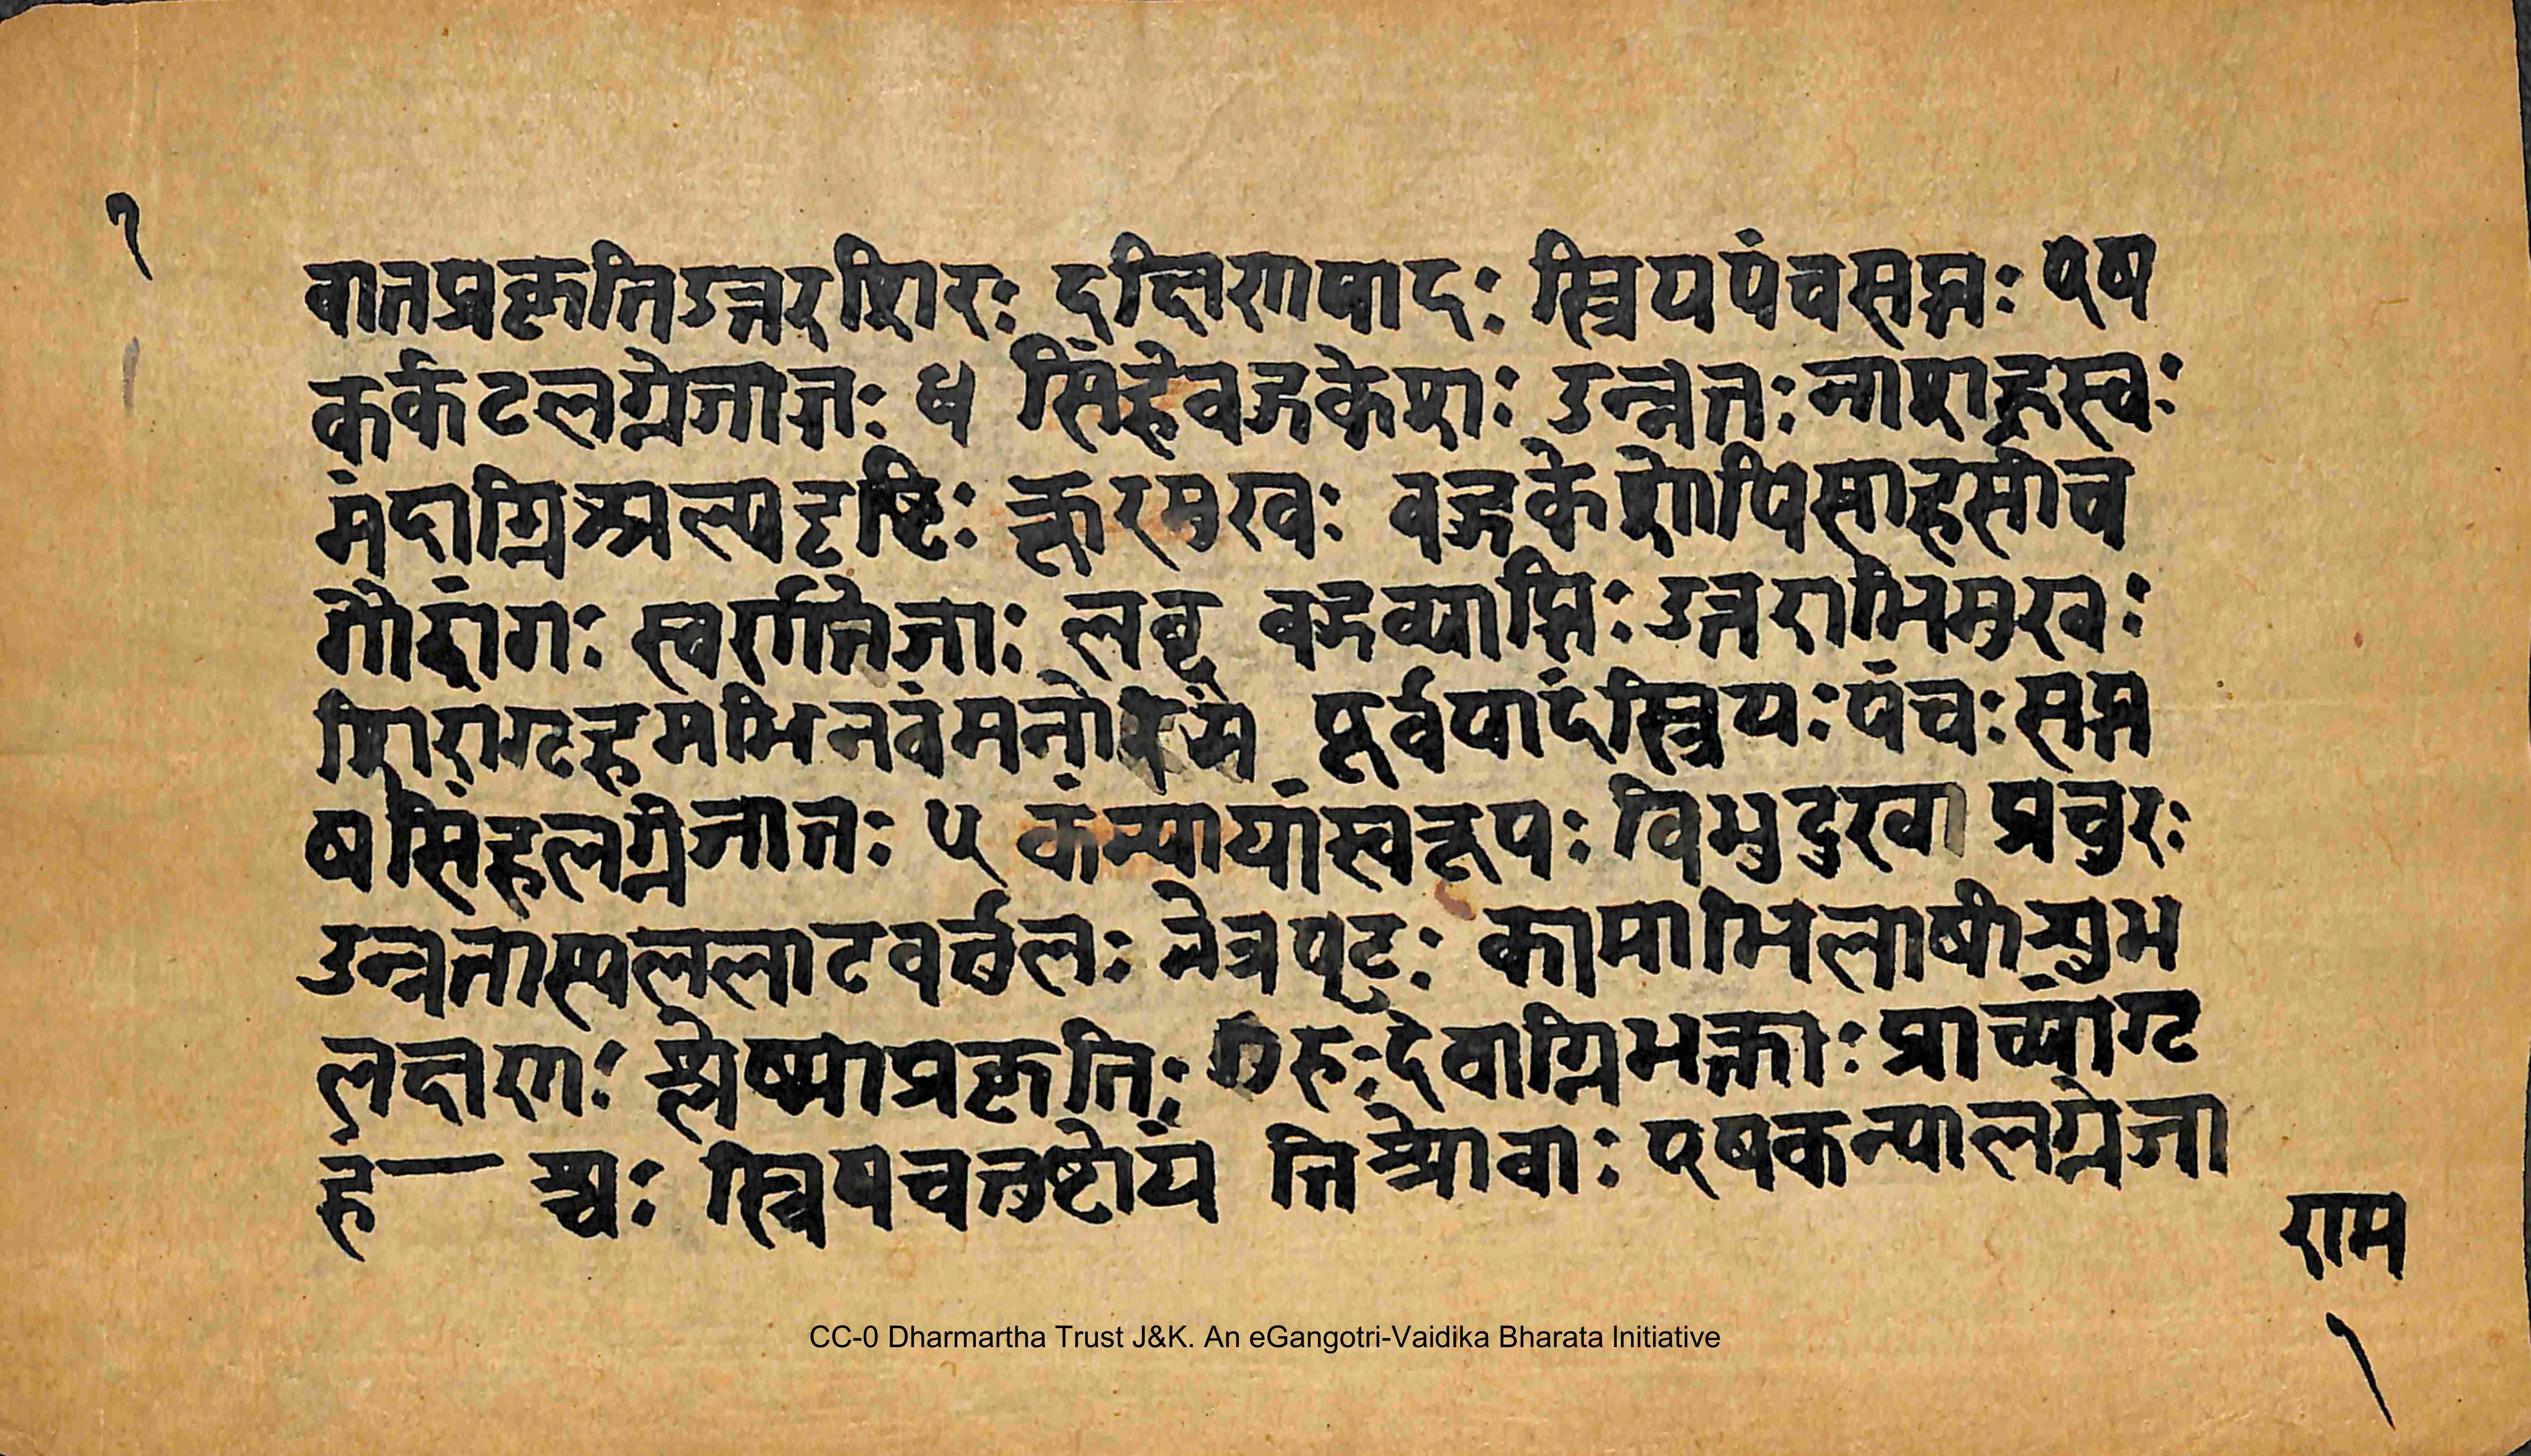 १
वातप्रकृतिउत्तरशिरः दक्षिणपादः स्त्रियपंचसप्तः एष
कर्कटलग्नेजातः ४ सिंहेवक्रकेशाः उन्नतः नाशाह्रस्वः
मंदाग्निअल्पदृष्टिः क्रूरमुखः वक्रकेशोपिसाहसीच
गौरांगः स्वर्णतेजाः वक्रव्याप्तिः उत्तराभिमुखः
शिरागृहमभिनवंमनो पूर्वपादंस्त्रियः पंचः सप्त
षसिंहलग्नेजातः ५ कंन्यायांस्वरूपः विभुदुखा प्रचुरः
उन्नतास्पललाटवर्त्तुलः नेत्रपृटः कामाभिलाषीशुभ
लक्षणः श्लेष्माप्रकृतिः गुरुःदेवाग्निभक्ताः प्राच्यांगृ
हं— श्वः स्त्रियचतुष्टोयं एषकन्यालग्नेजा
राम
१
CC-0 Dharmartha Trust J&K. An eGangotri-Vaidika Bharata Initiative